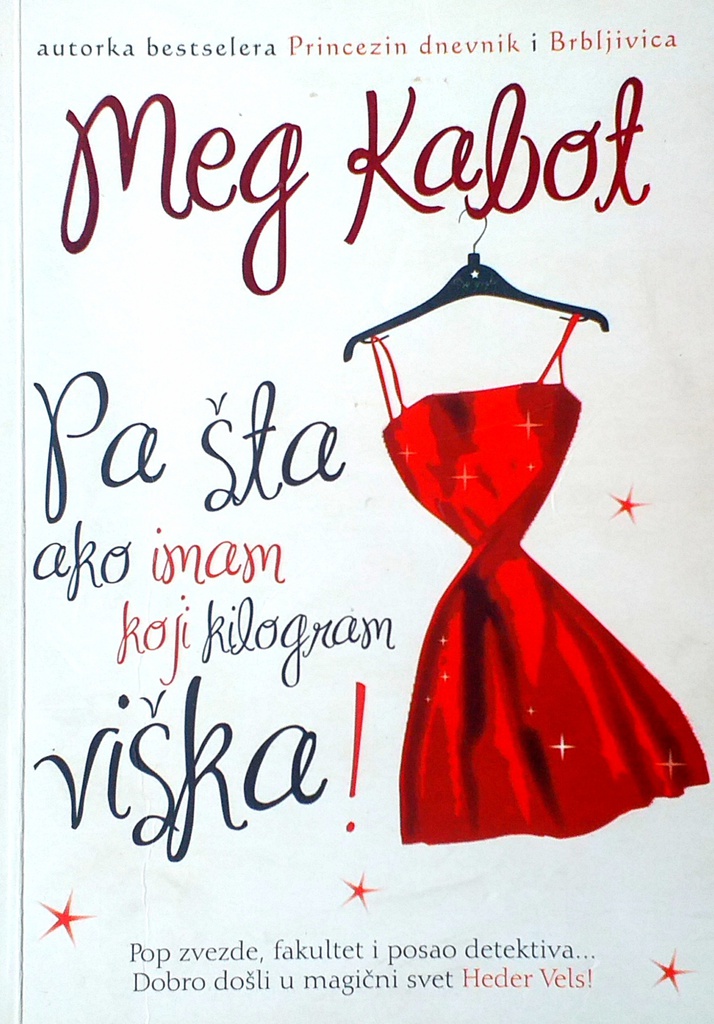 autorka bestselera Princezin dnevnik i Brbljivica
Meg Kabot
Pa šta
ako imam
koji kilogram
viška!
Pop zvezde, fakultet i posao detektiva...
Dobro došli u magični svet Heder Vels!